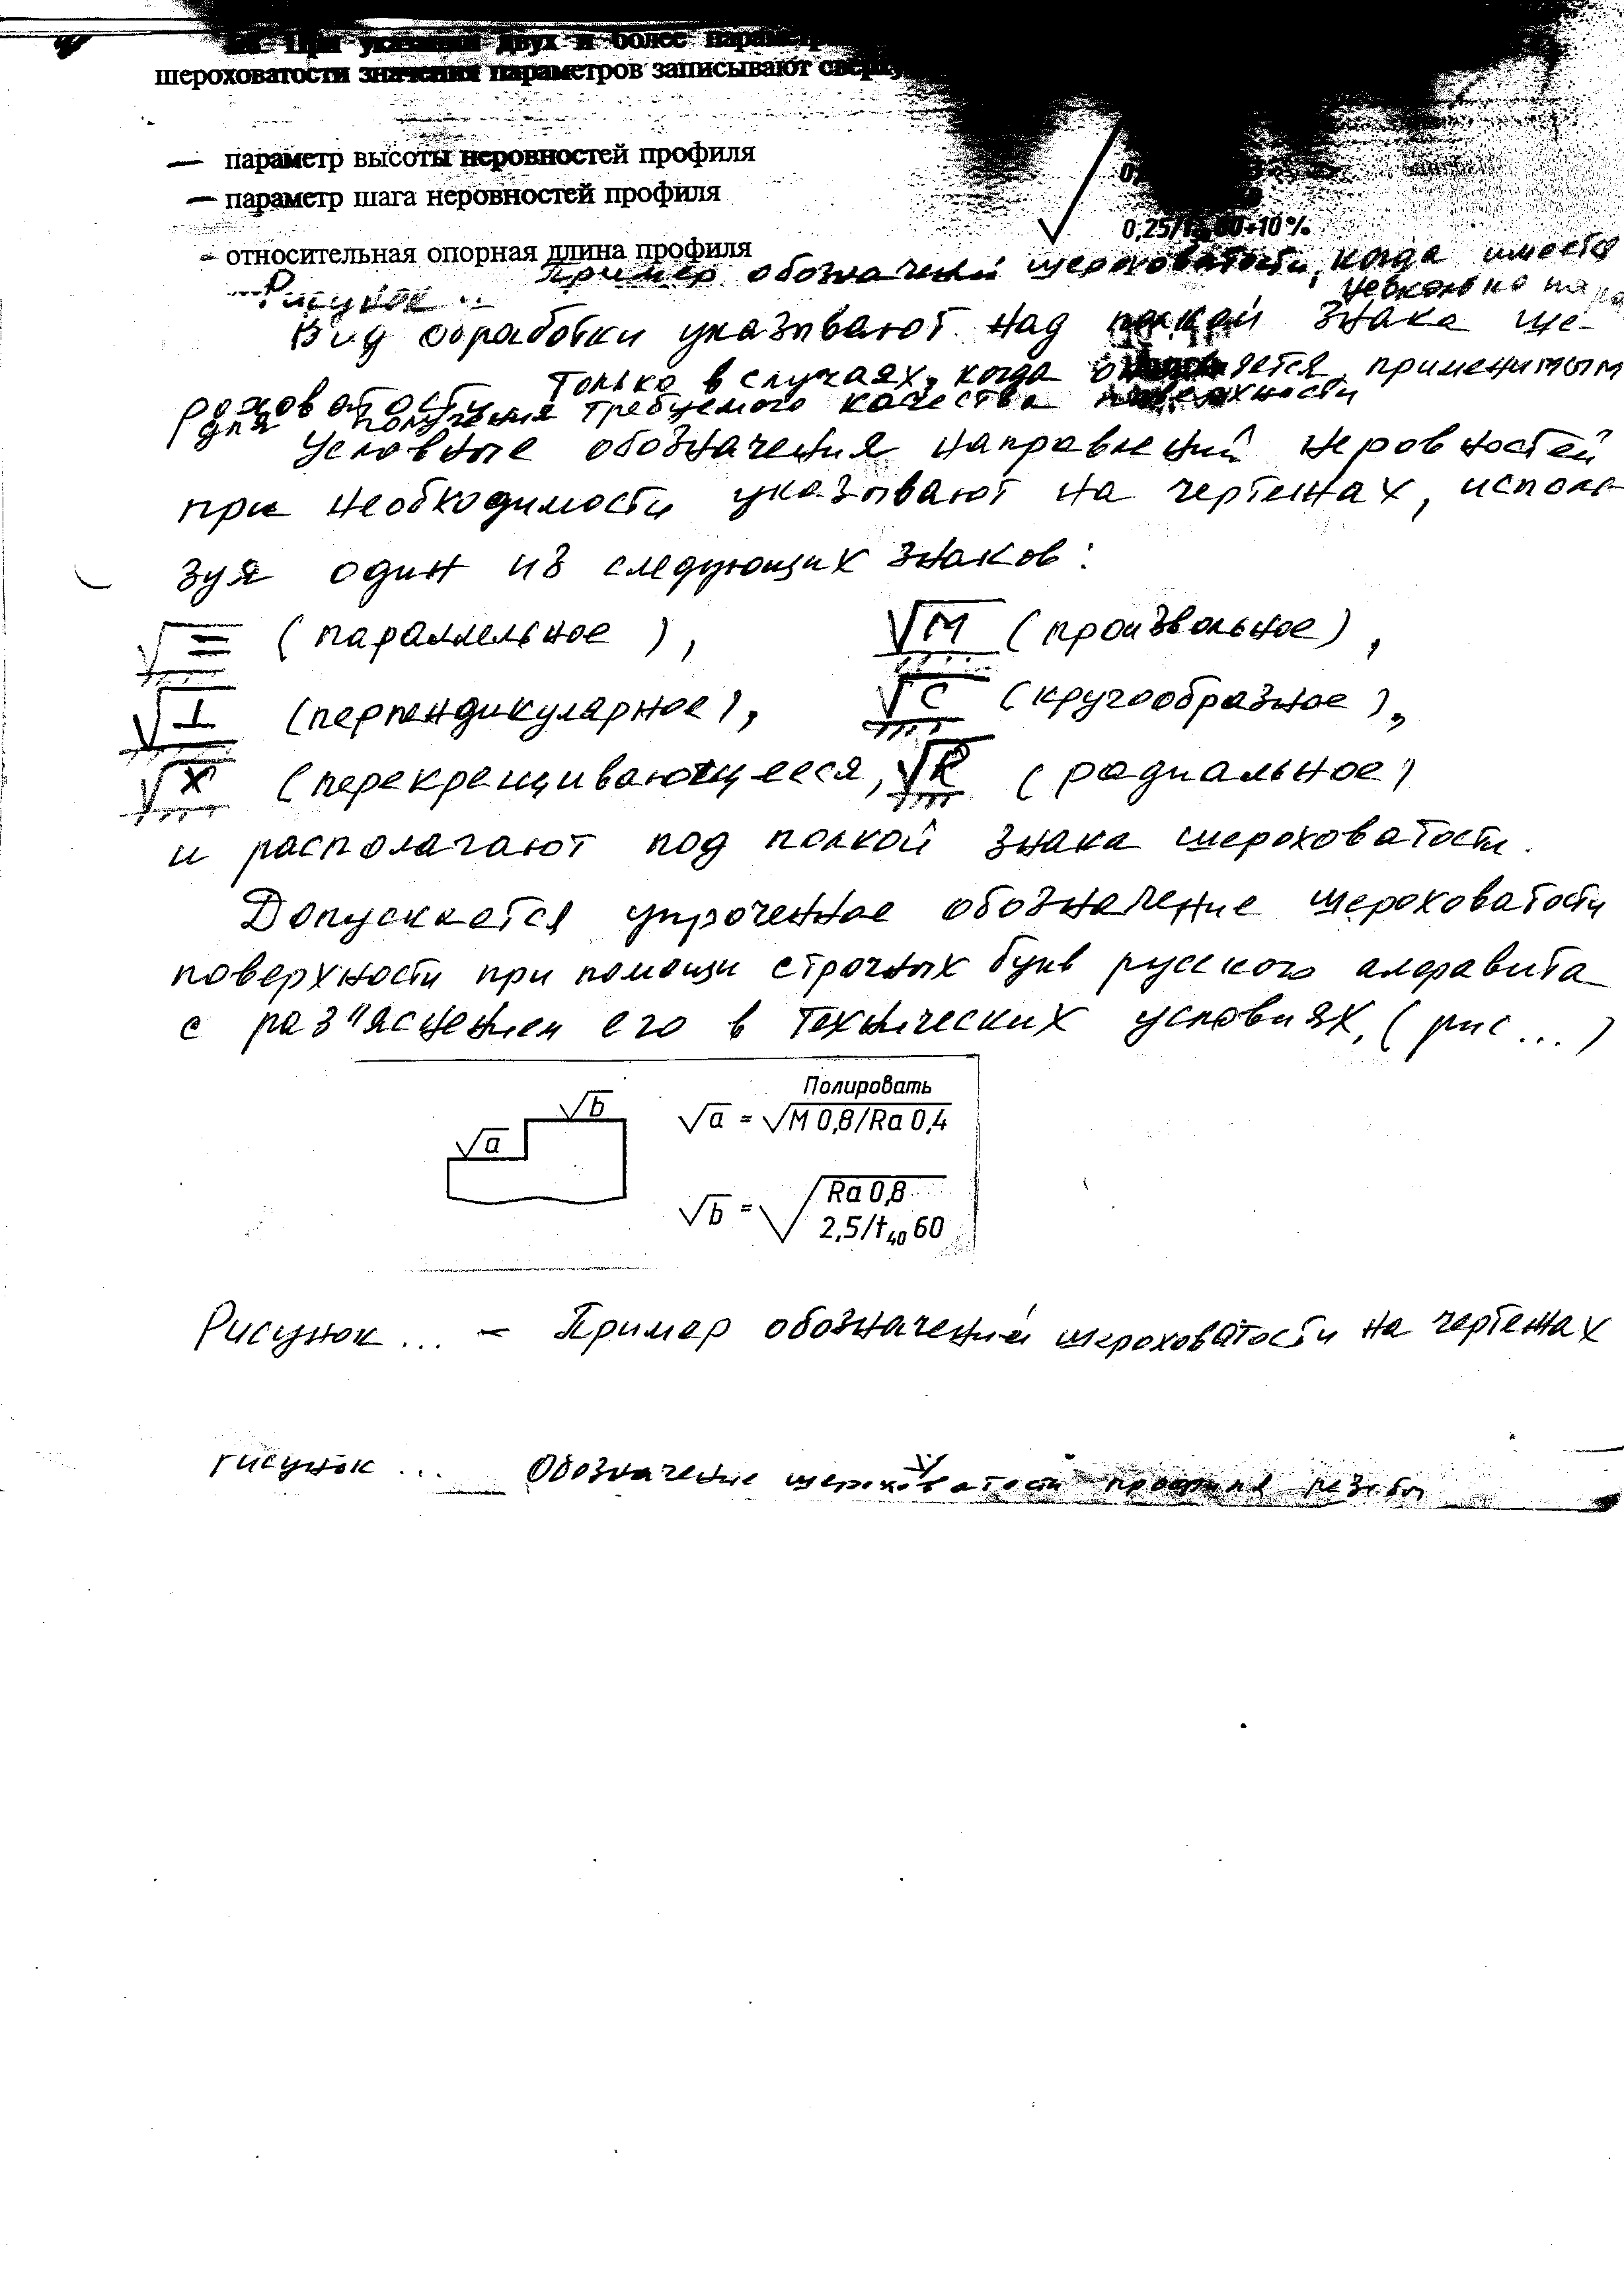 При указании двух и более
шероховатости значения параметров записывают
— параметр высоты неровностей профиля
— параметр шага неровностей профиля
0,25/ +10%
- относительная опорная длина профиля
Рисунок .. Пример обозначений шероховатости, когда имеется
несколько
Вид обработки указывают над полкой знака ше-
роховатости только в случаях, когда применимым
для получения требуемого качества поверхности
Условные обозначения направлений неровностей
при необходимости указывают на чертежах, исполь-
зуя один из следующих знаков:
√= (параллельное), √M (произвольное),
√⊥ (перпендикулярное), √C (кругообразное),
√X (перекрещивающееся, √R (радиальное)
и располагают под полкой знака шероховатости.
Допускается упрочённое обозначение шероховатости
поверхности при помощи строчных букв русского алфавита
с раз"яснением его в технических условиях. (рис...)
√b
√a
Полировать
√a = √M 0,8/Ra 0,4
√b = √Ra 0,8
2,5/t40 60
Рисунок ... – Пример обозначений шероховатости на чертежах
Рисунок ... Обозначение шероховатости профиля резьбы